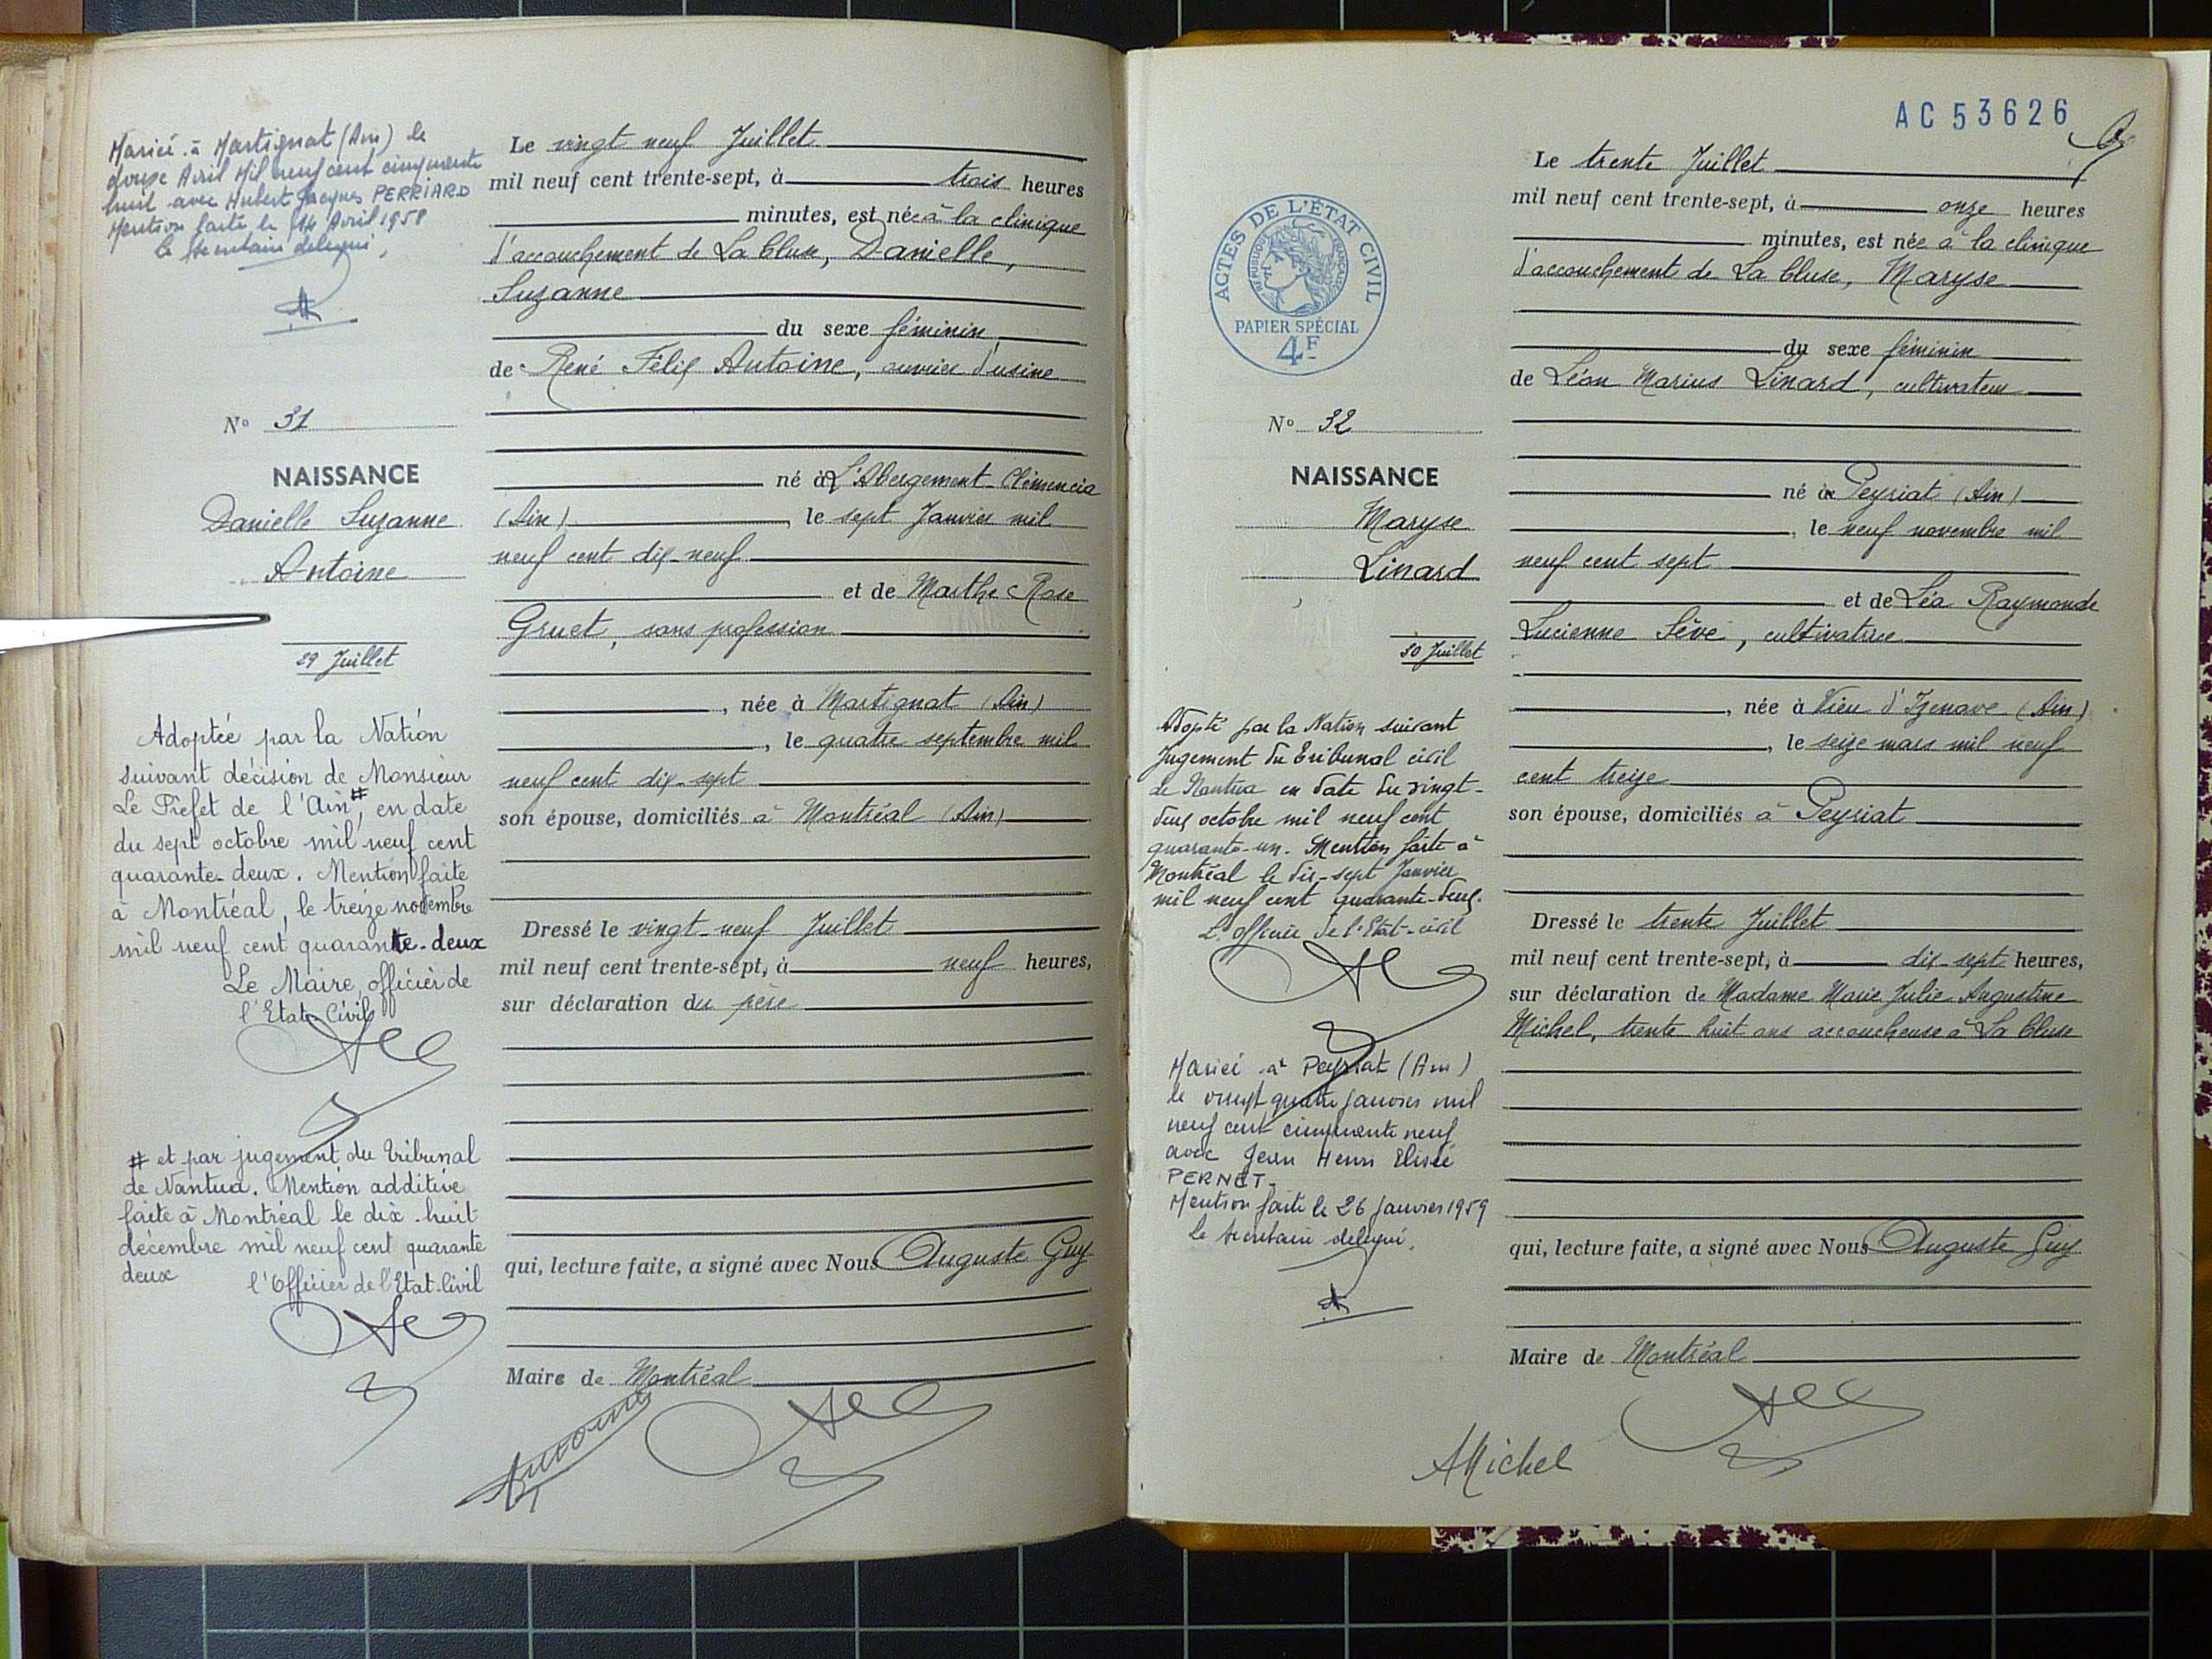 Mariée à Martignat (Ain) le
douze Avril Mil neuf cent cinquante
huit avec Hubert Jacques PERRIARD
Mention faite le 14 Avril 1958
le secrétaire délégué,
N° 31
NAISSANCE
Danielle Suzanne
Antoine
29 Juillet
Adoptée par la Nation
suivant décision de Monsieur
Le Préfet de l'Ain #, en date
du sept octobre mil neuf cent
quarante-deux. Mention faite
à Montréal, le treize novembre
mil neuf cent quarante-deux
Le Maire, officier de
l'Etat-Civil
# et par jugement du tribunal
de Nantua. Mention additive
faite à Montréal le dix-huit
décembre mil neuf cent quarante
deux
l'Officier de l'Etat-Civil
Le vingt neuf Juillet
mil neuf cent trente-sept, à trois heures
minutes, est née à la clinique
d'accouchement de La Cluse, Danielle,
Suzanne
du sexe féminin,
de René Félix Antoine, ouvrier d'usine
né à L'Abergement-Clémencia
(Ain), le sept Janvier mil
neuf cent dix-neuf
et de Marthe Rose
Gruet, sans profession
, née à Martignat (Ain)
, le quatre septembre mil
neuf cent dix-sept
son épouse, domiciliés à Montréal (Ain)
Dressé le vingt-neuf Juillet
mil neuf cent trente-sept, à neuf heures,
sur déclaration du père
qui, lecture faite, a signé avec Nous Auguste Guy
Maire de Montréal
Antoine
AC 53626
ACTES DE L'ÉTAT CIVIL
RÉPUBLIQUE FRANÇAISE
PAPIER SPÉCIAL
4F
N° 32
NAISSANCE
Maryse
Linard
30 Juillet
Adopté par la Nation suivant
Jugement du Tribunal civil
de Nantua en date du vingt-
deux octobre mil neuf cent
quarante-un. Mention faite à
Montréal le dix-sept Janvier
mil neuf cent quarante-deux.
L'officier de l'Etat-civil
Mariée à Peyriat (Ain)
le vingt quatre janvier mil
neuf cent cinquante neuf
avec Jean Henri Elisée
PERNET.
Mention faite le 26 janvier 1959
le secrétaire délégué,
Le trente Juillet
mil neuf cent trente-sept, à onze heures
minutes, est née à la clinique
d'accouchement de La Cluse, Maryse
du sexe féminin
de Léon Marius Linard, cultivateur
né à Peyriat (Ain)
, le neuf novembre mil
neuf cent sept
et de Léa Raymonde
Lucienne Sève, cultivatrice
, née à Vieu d'Izenave (Ain)
, le seize mars mil neuf
cent treize
son épouse, domiciliés à Peyriat
Dressé le trente Juillet
mil neuf cent trente-sept, à dix-sept heures,
sur déclaration de Madame Marie Julie Augustine
Michel, trente huit ans accoucheuse à La Cluse
qui, lecture faite, a signé avec Nous Auguste Guy
Maire de Montréal
AMichel